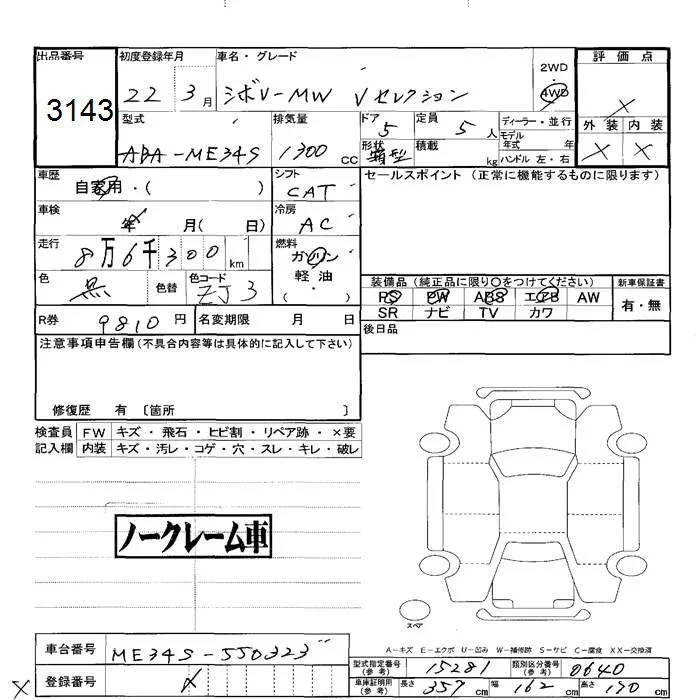 出品番号 初度登録年月 車名・グレード 2WD 評価点
3143 22 3月 シボレーMW Vセレクション 4WD ×
型式 排気量 ドア 5 定員 5人 ディーラー・並行 外装 内装
ABA-ME34S 1300 cc 形状 箱型 積載 kg モデル年式 年 ハンドル 左・右 × ×
車歴 自家用・( ) シフト CAT セールスポイント (正常に機能するものに限ります)
車検 年 月( 日) 冷房 AC
走行 8万6千300 km 燃料 ガソリン 軽油 ( )
色 黒 色替 色コード ZJ3 装備品 (純正品に限り○をつけてください) 新車保証書
PS PW ABS エアB AW 有・無
SR ナビ TV カワ
R券 9810円 名変期限 月 日 後日品
注意事項申告欄(不具合内容等は具体的に記入して下さい)
修復歴 有 〔箇所 〕
検査員 FW キズ・飛石・ヒビ割・リペア跡・×要
記入欄 内装 キズ・汚レ・コゲ・穴・スレ・キレ・破レ
ノークレーム車
スペア
A-キズ E-エクボ U-凹み W-補修跡 S-サビ C-腐食 XX-交換済
車台番号 ME34S-550323
型式指定番号(参考) 15281 類別区分番号(参考) 0640
× 登録番号
車庫証明用(参考) 長さ 359cm 幅 162cm 高さ 170cm